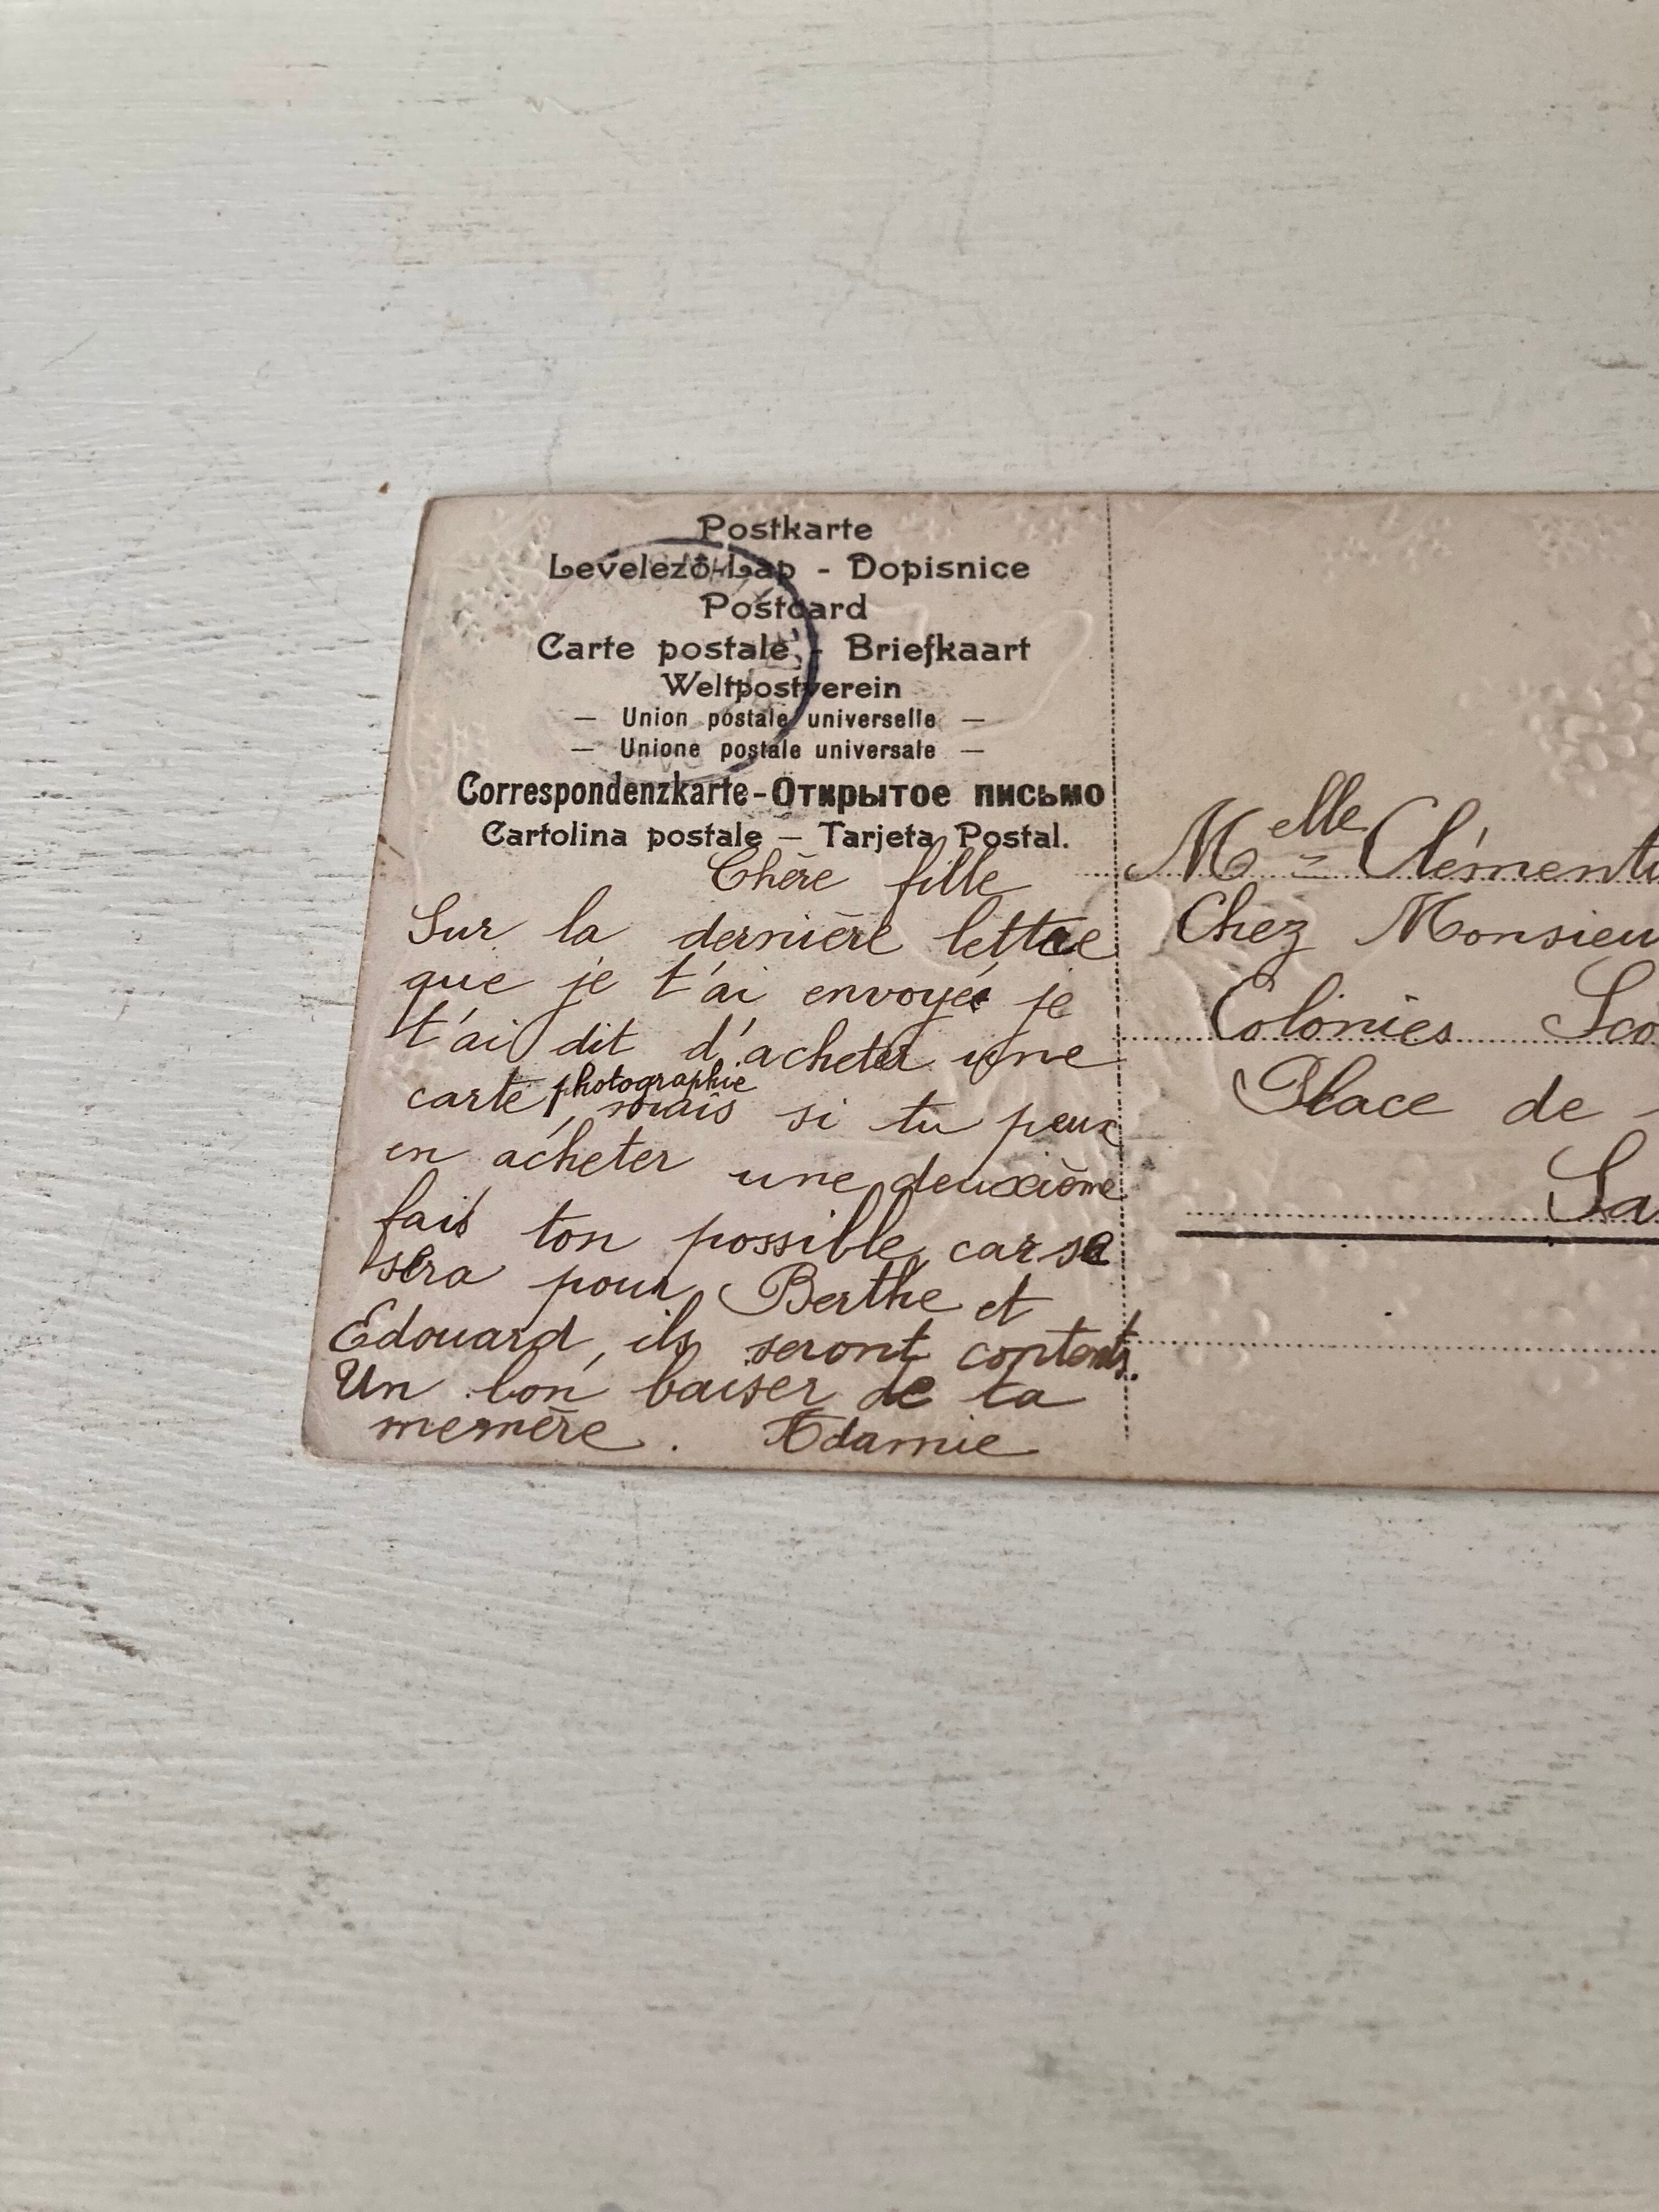 Postkarte
Levelező-Lap - Dopisnice
Postcard
Carte postale - Briefkaart
Weltpostverein
— Union postale universelle —
— Unione postale universale —
Correspondenzkarte-Открытое письмо
Cartolina postale — Tarjeta Postal.
Chère fille
Sur la dernière lettre
que je t'ai envoyé je
t'ai dit d'acheter une
carte photographie, mais si tu peux
en acheter une deuxième
fait ton possible, car se
sera pour Berthe et
Edouard, ils seront contents.
Un bon baiser de ta
memère. Edamie
Melle Clémenti
Chez Monsieu
Colonies Sco
Place de
Sa